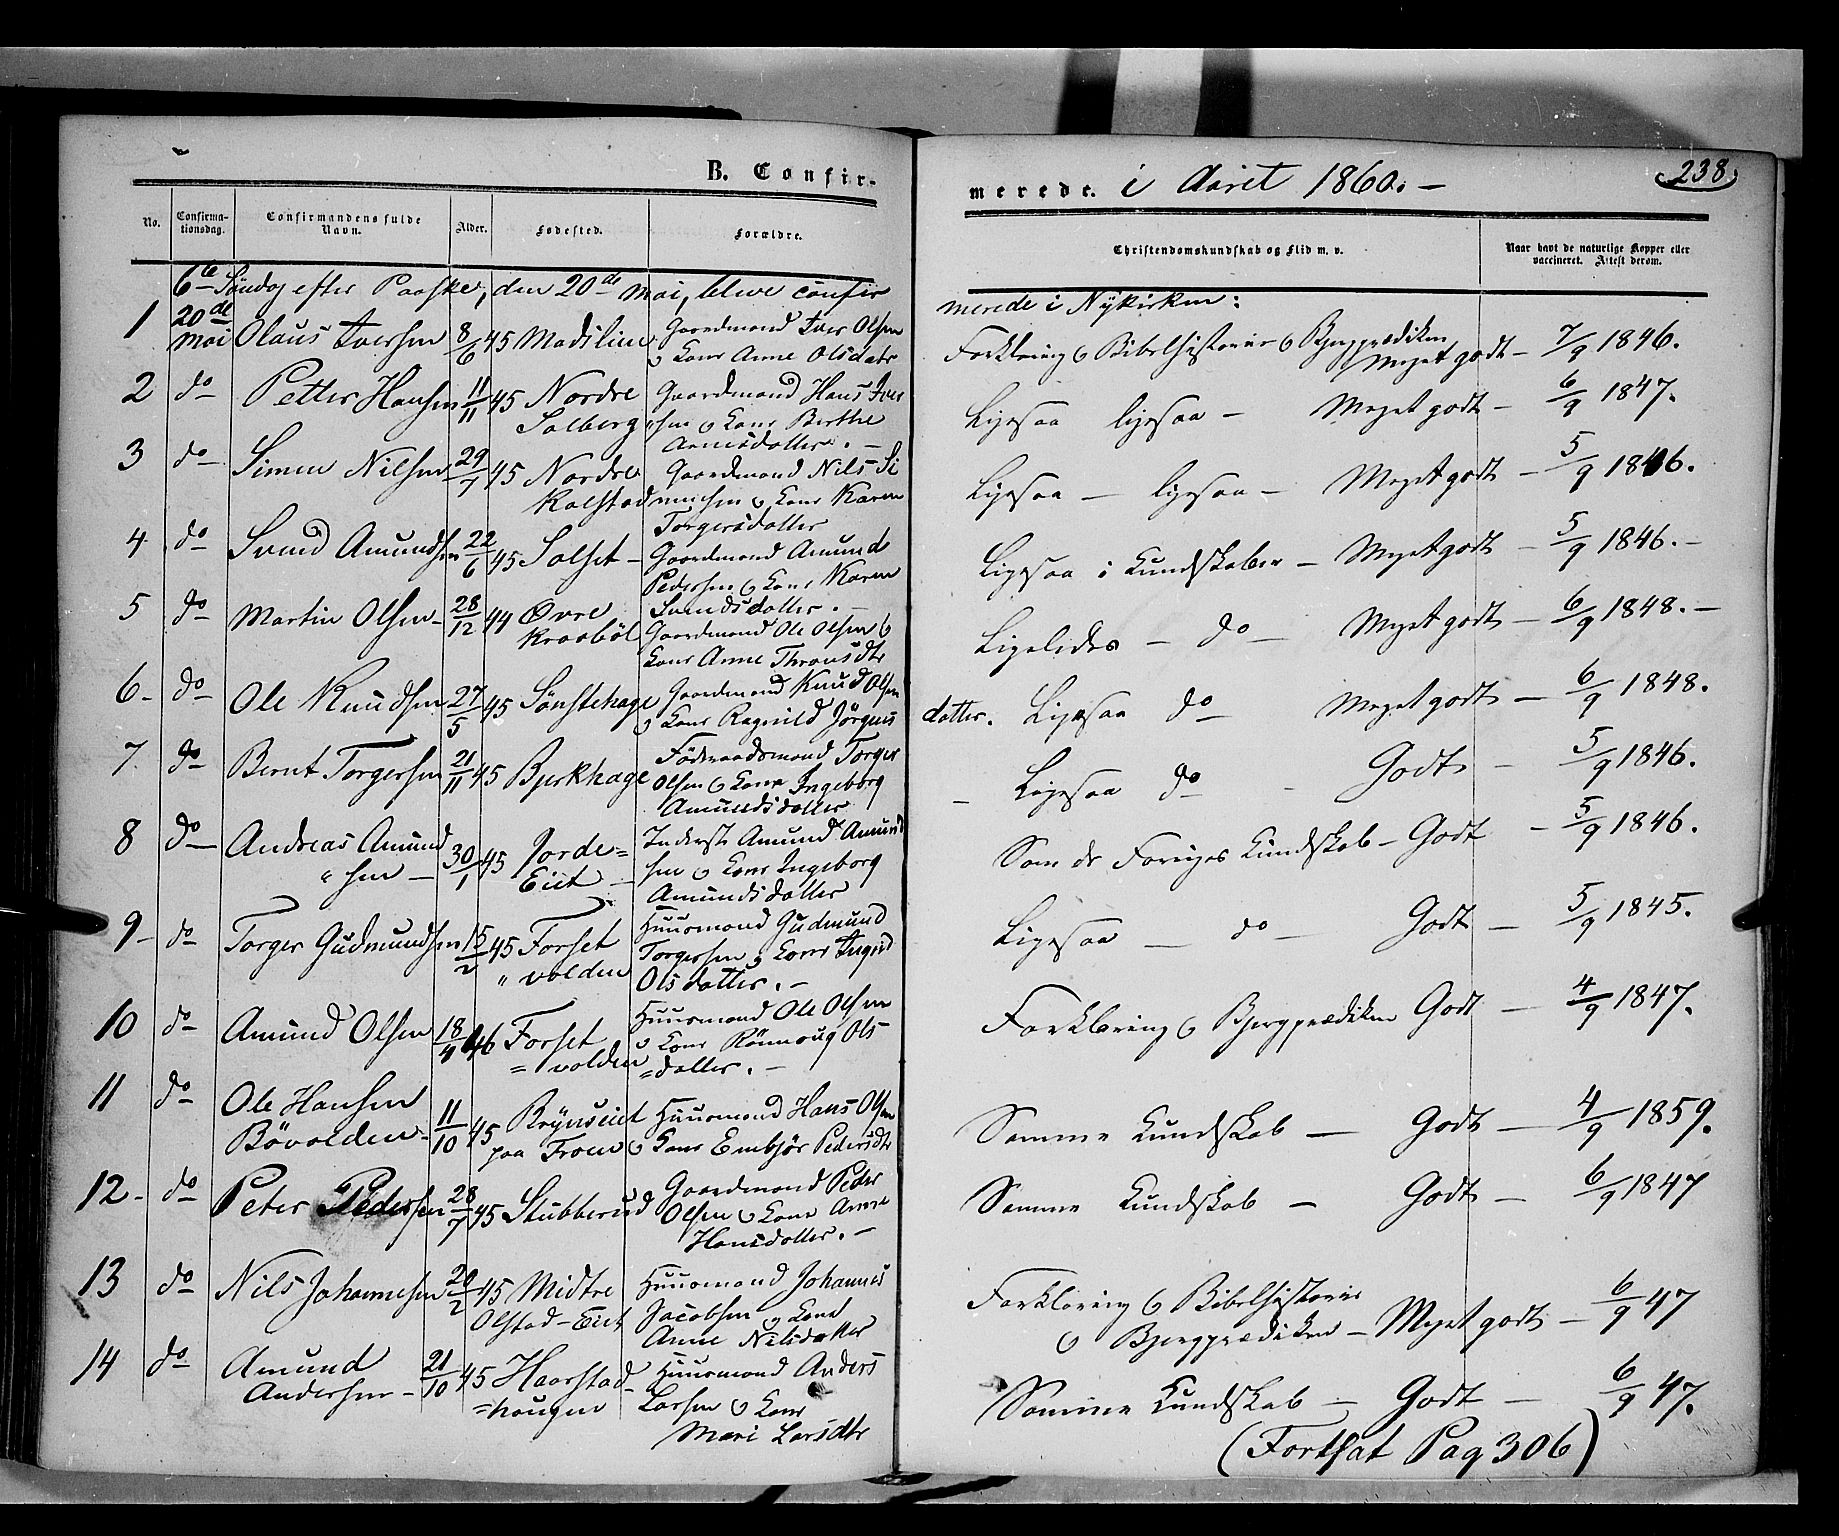 B. Confir-
No.
Confirma-
tionsdag.
Confirmandens fulde
Navn.
Alder.
Fødested.
Forældre.
6te Søndag efter Paaske, den 20de Mai, bleve confir
1 20de Mai Olaus Iversen 8/6 45 Modilien Gaardmand Iver Olsen
& Kone Anne Olsdatr
2 do Petter Hansen 11/11 45 Nordre Gaardmand Hans Iver
Solberg sen & Kone Berthe
Arnesdatter. –
3 do Simen Nilsen 29/7 45 Nordre Gaardmand Nils Si
Kalstad mensen & Kone Karen
Torgersdatter
4 do Svend Amundsen 22/6 45 Solset – Gaardmand Amund
Pedersen & Kone Karen
Svendsdatter. –
5 do Martin Olsen – 28/12 44 Øvre Gaardmand Ole Olsen &
Kraabøl Kone Anne Thronsdtr
6 – do Ole Knudsen 27/5 45 Sønstehage Gaardmand Knud Olsen
& Kone Ragnild Jörgens
7 do Bernt Torgersen 21/11 45 Bjerkhage Föderaadsmand Torger
Olsen & Kone Ingeborg
Amundsdatter
8 do Andreas Amund 30/1 45 Jorde= Inderst Amund Amund
" sen – Eiet – sen & Kone Ingeborg
Amundsdatter
9 – do Torger Gudmundsen 15/2 45 Forset Huusmand Gudmund
" volden Torgersen & Kone Ingrid
Olsdatter. –
10 do Amund Olsen 18/4 46 Forset Huusmand Ole Olsen
= volden & Kone Rönnoug Ols
=datter. –
11 do Ole Hansen 11/10 45 Brynseiet Huusmand Hans Olsen
Bövolden – paa Fron & Kone Embjör Pedersdtr
12 – do Peter Pedersen 28/7 45 Stubberud Gaardmand Peder
Olsen & Kone Anne
Hansdatter. –
13 do Nils Johannesen 20/2 45 Midtre Huusmand Johannes
Olstad – Eiet Jacobsen & Kone
Anne Nilsdatter
14 do Amund 21/10 45 Haarstad Huusmand Anders
Andersen – =haugen Larsen & Kone
Mari Larsdtr
merede. i Aaret 1860. –
238
Christendomskundskab og Flid m. v.
Naar havt de naturlige Kopper eller
vaccineret. Attest derom.
merede i Nykirken:
Forklaring & Bibelhistorie & Bjergprædiken
Meget godt – 7/9 1846.
Ligesaa ligesaa – Meget godt – 6/9 1847.
Ligesaa – ligesaa – Meget godt – 5/9 1846.
Ligesaa i Kundskaber – Meget godt – 5/9 1846. –
Ligeledes – do – Meget godt – 6/9 1848. –
datter. Ligesaa do Meget godt – 6/9 1848.
– Ligesaa do – Godt – 5/9 1846.
Som de Foriges Kundskab – Godt – 5/9 1846.
Ligesaa – do – Godt – 5/9 1845.
Forklaring & Bjergprædiken Godt – 4/9 1847.
Samme Kundskab – Godt – 4/9 1859.
Samme Kundskab – Godt – 6/9 1847
Forklaring & Bibelhistorie
& Bjergprædiken – Meget godt – 6/9 47
Samme Kundskab – Godt – 6/9 47.
(Fortsat Pag 306)